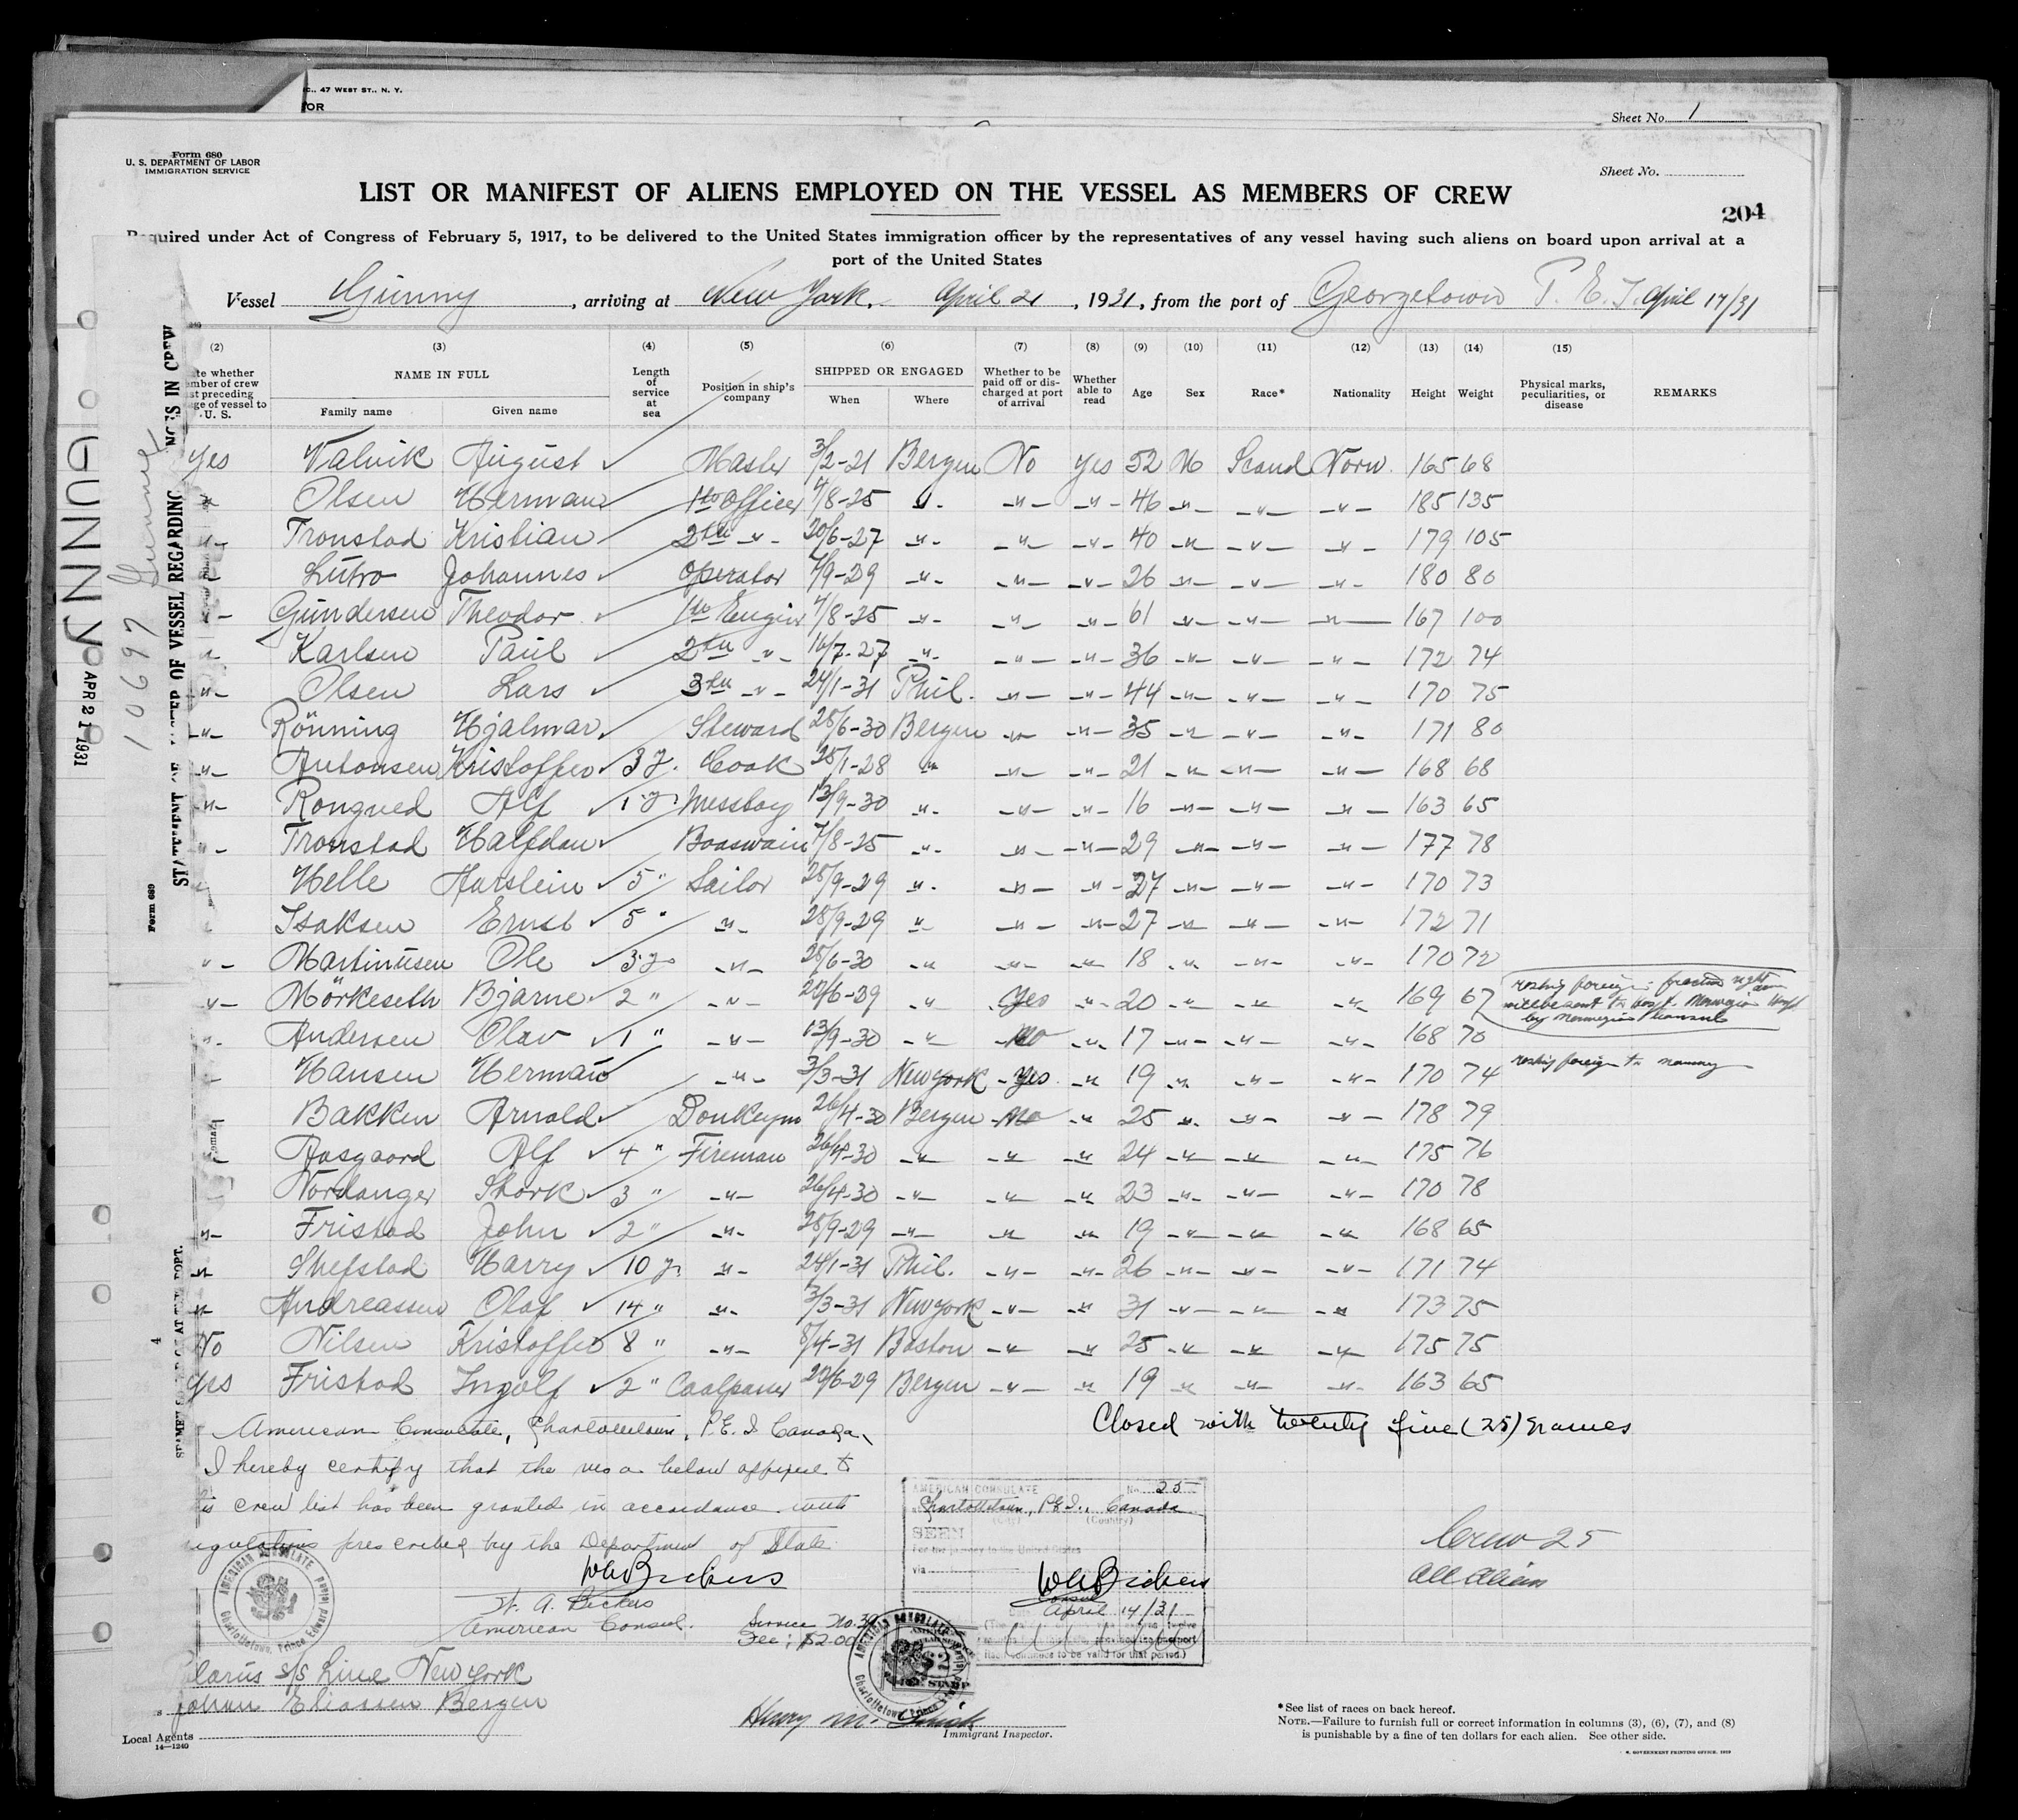 C., 47 WEST ST., N. Y.
TOR
Sheet No. 1
Form 680
U. S. DEPARTMENT OF LABOR
IMMIGRATION SERVICE
Sheet No.
LIST OR MANIFEST OF ALIENS EMPLOYED ON THE VESSEL AS MEMBERS OF CREW
204
Required under Act of Congress of February 5, 1917, to be delivered to the United States immigration officer by the representatives of any vessel having such aliens on board upon arrival at a
port of the United States
Vessel Gunny, arriving at New York. April 21, 1931, from the port of Georgetown P. E. I. April 17/31
(2) (3) (4) (5) (6) (7) (8) (9) (10) (11) (12) (13) (14) (15)
NAME IN FULL Length of service at sea Position in ship's company SHIPPED OR ENGAGED Whether to be paid off or discharged at port of arrival Whether able to read Age Sex Race* Nationality Height Weight Physical marks, peculiarities, or disease REMARKS
Family name Given name When Where
Yes Valvik August Master 3/2-21 Bergen No Yes 52 M Scand Norw. 165 68
" Olsen Herman 1ste Officer 4/8-25 " " " 46 " " " 185 135
" Tronstad Kristian 2en " 20/6-27 " " " 40 " " " 179 105
" Lutro Johannes Operator 4/9-29 " " " 26 " " " 180 80
" Gundersen Theodor 1ste Engin 4/8-25 " " " 61 " " " 167 100
" Karlsen Paul 2en " 16/7-27 " " " 36 " " " 172 74
" Olsen Lars 3en " 24/1-31 Phil. " " 44 " " " 170 75
" Rönning Hjalmar Steward 28/6-30 Bergen " " 35 " " " 171 80
" Antonsen Kristoffer 3 y. Cook 28/1-28 " " " 21 " " " 168 68
" Rongved Alf 1 y. Messboy 13/9-30 " " " 16 " " " 163 65
" Tronstad Halfdan Boaswain 4/8-25 " " " 29 " " " 177 78
" Helle Harslein 5 " Sailor 28/9-29 " " " 27 " " " 170 73
" Isaksen Ernst 5 " " 28/9-29 " " " 27 " " " 172 71
" Martinusen Ole 3 y. " 28/6-30 " " " 18 " " " 170 72
" Mörkeseth Bjarne 2 " " 20/6-29 " Yes " 20 " " " 169 67
" Andersen Olav 1 " " 13/9-30 " No " 17 " " " 168 70
by Norwegian Consul
" Hansen Herman " 3/3-31 New York Yes " 19 " " " 170 74
" Bakken Arnold Donkeym 26/4-30 Bergen No " 25 " " " 178 79
" Aasgaard Alf 4 " Fireman 26/4-30 " " " 24 " " " 175 76
Nordanger Stork 3 " " 26/4-30 " " " 23 " " " 170 78
" Fristad John 2 " " 28/9-29 " " " 19 " " " 168 65
" Shefstad Harry 10 y. " 24/1-31 Phil. " " 26 " " " 171 74
" Andreassen Olaf 14 " " 3/3-31 New York " " 31 " " " 173 75
No Nilsen Kristoffer 8 " " 8/4-31 Boston " " 25 " " " 175 75
Yes Fristad Ingolf 2 " Coalpasser 20/6-29 Bergen " " 19 " " " 163 65
American Consulate, Charlottetown, P.E.I. Canada,
Closed with twenty five (25) names
I hereby certify that the visa below affixed to
is crew list has been granted in accordance with
regulations prescribed by the Department of State
W A Bickers
W. A. Bickers
American Consul.
Service No. 39
Fee: $2.00
AMERICAN CONSULATE No. 25
Charlottetown, P.E.I., Canada
(City) (Country)
SEEN
For her journey to the United States
via
W A Bickers
Consul
Date April 14/31
provided the passport
continues to be valid for that period.)
Crew 25
All Alien
AMERICAN CONSULATE
Charlottetown, Prince Edward Island
S/S Line New York
Johan Eliassen Bergen
Local Agents
14—1240
Henry M.
Immigrant Inspector.
*See list of races on back hereof.
NOTE.—Failure to furnish full or correct information in columns (3), (6), (7), and (8)
is punishable by a fine of ten dollars for each alien. See other side.
GUNNY
APR 21 1931
10697
Form 689